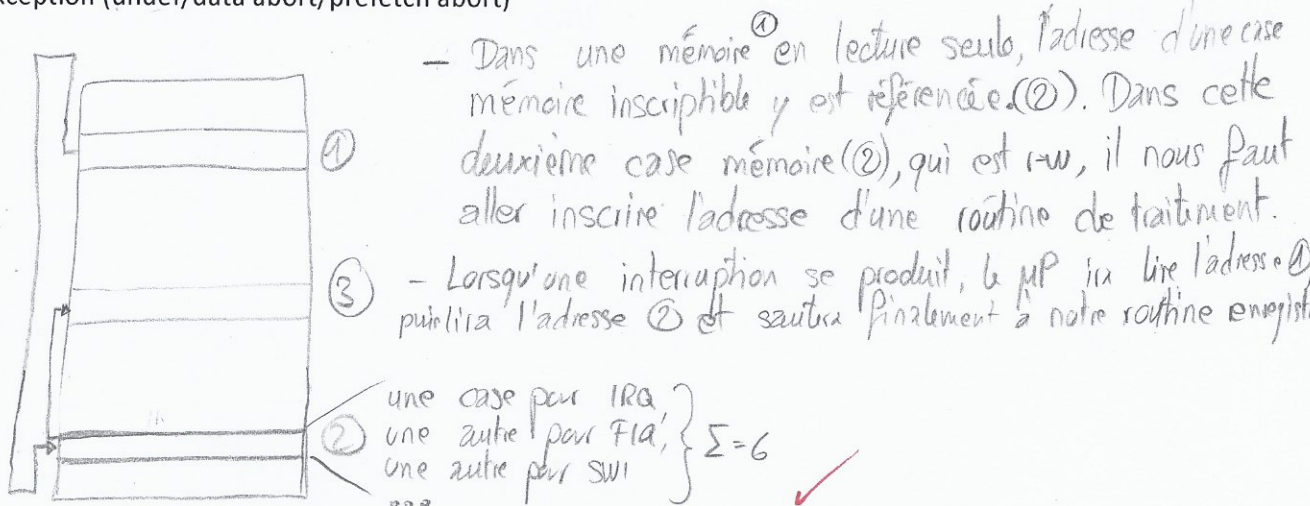 xception (undef/data abort/prefetch abort)
– Dans une mémoire ① en lecture seule, l'adresse d'une case
mémoire inscriptible y est référencée.(②). Dans cette
deuxième case mémoire (②), qui est r-w, il nous faut
aller inscrire l'adresse d'une routine de traitement.
– Lorsqu'une interruption se produit, le µP ira lire l'adresse ①
puis lira l'adresse ② et sautera finalement à notre routine enregist
①
③
②
une case pour IRQ,
une autre pour FIQ,
une autre pour SWI
Σ=6